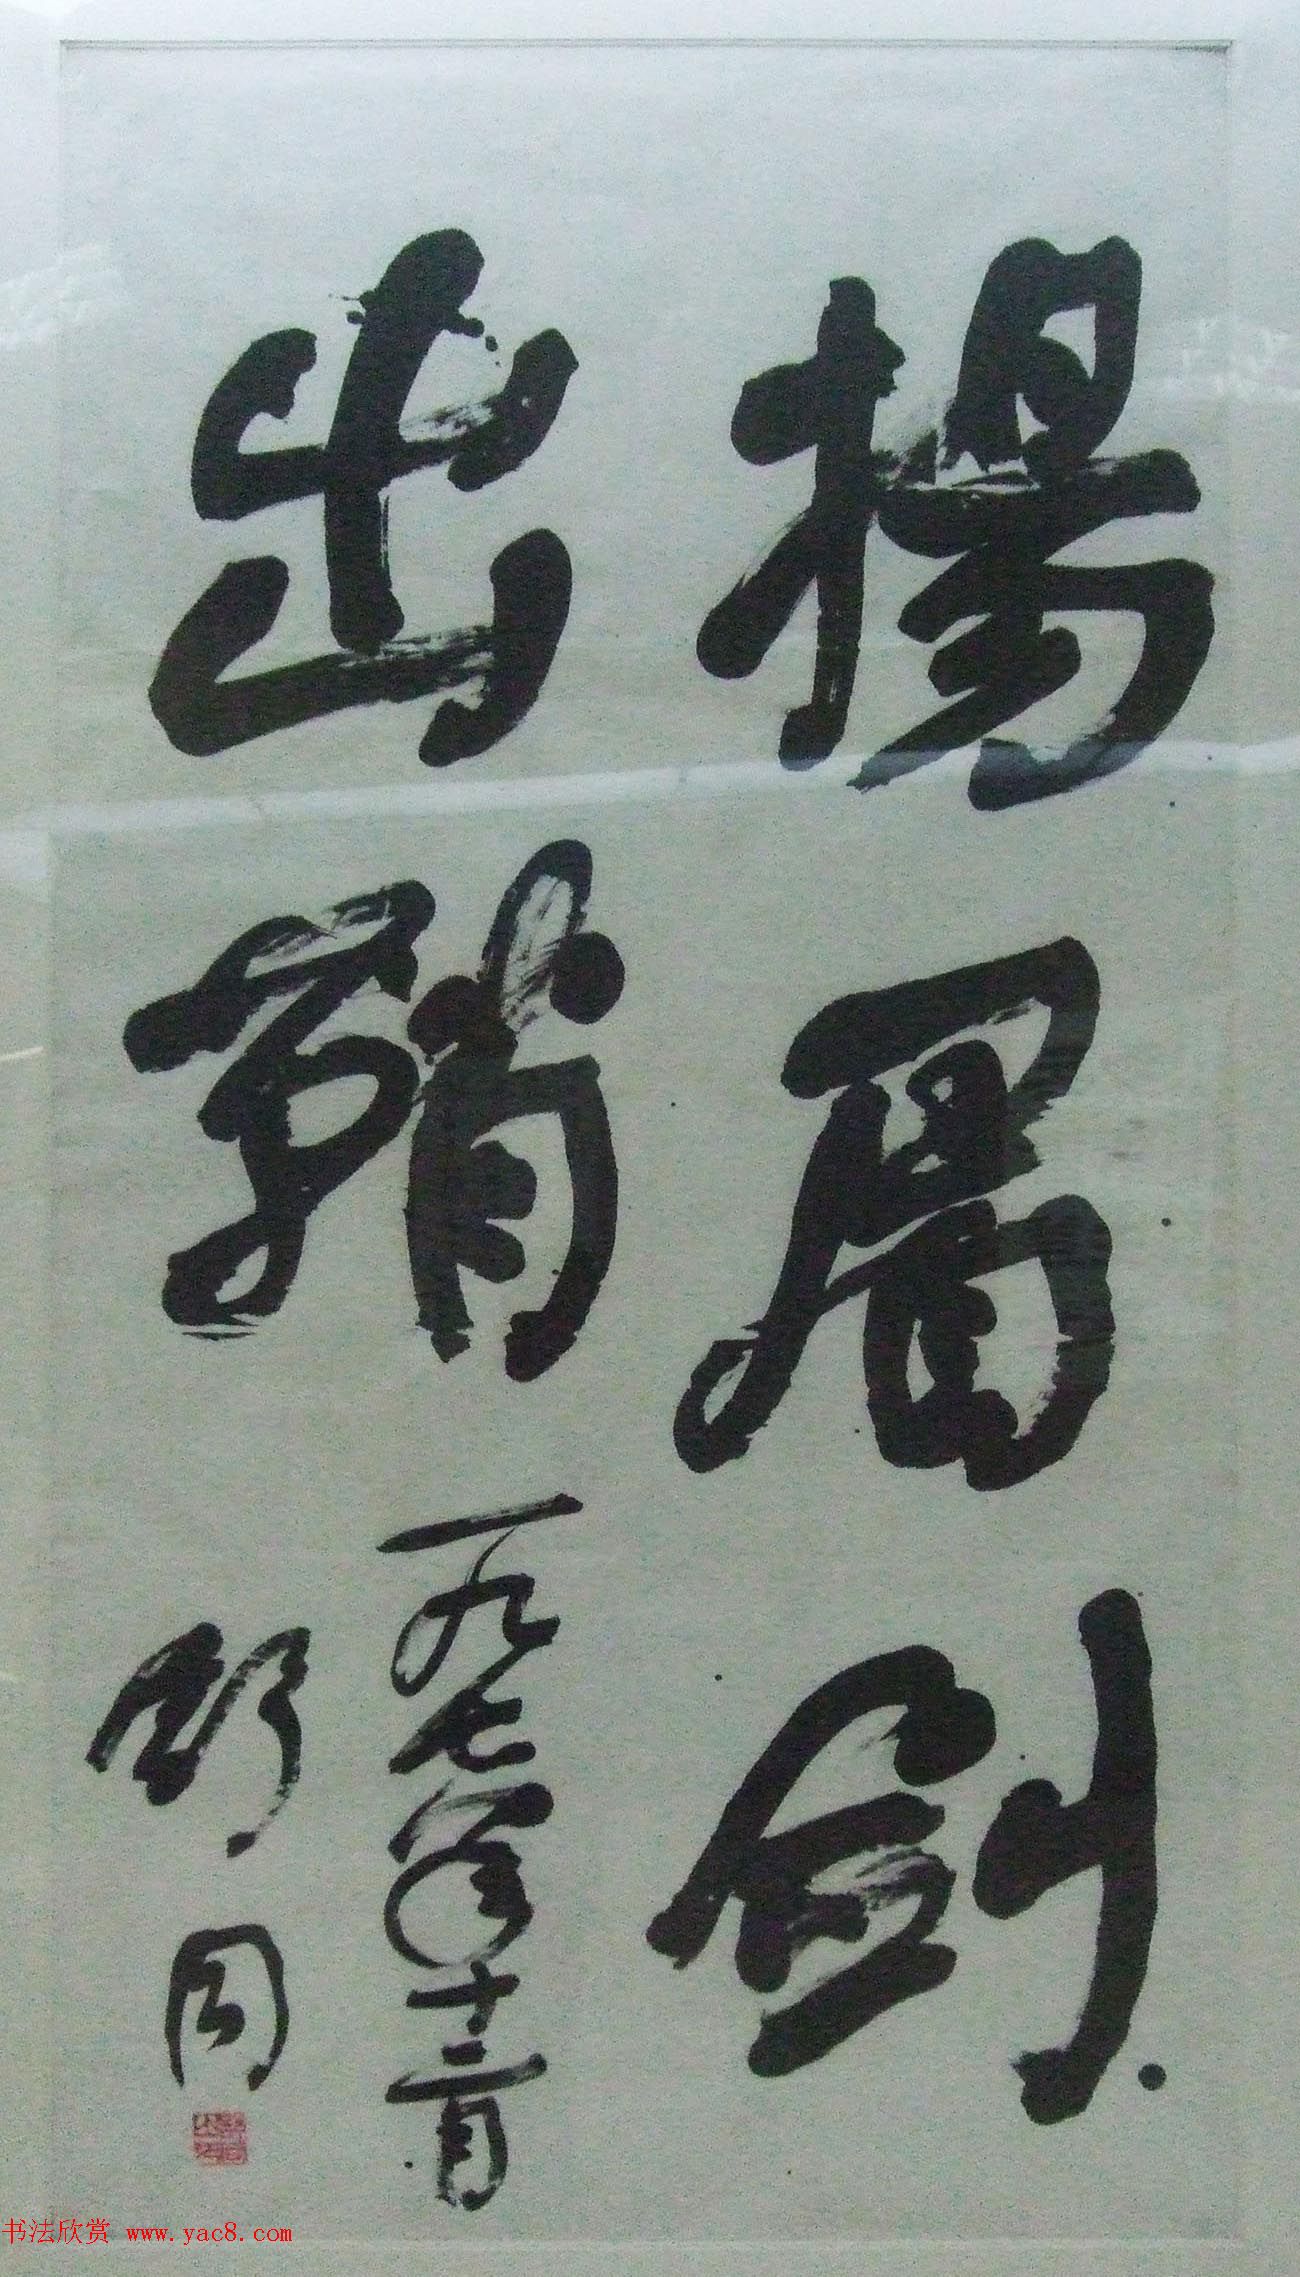 揚眉劍
出鞘
一九七六年十二月
舒同
书法欣赏 www.yac8.com